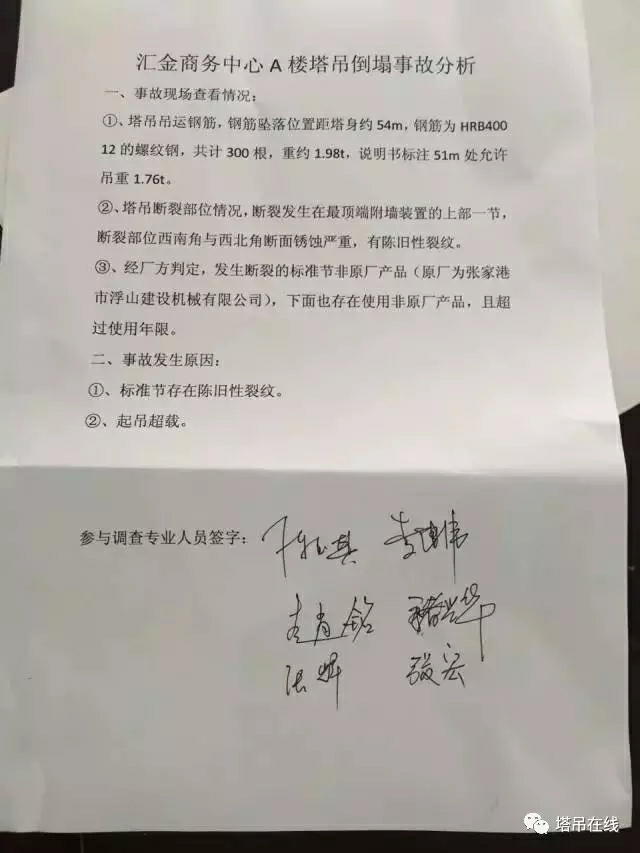 汇金商务中心 A 楼塔吊倒塌事故分析
一、事故现场查看情况：
①、塔吊吊运钢筋，钢筋坠落位置距塔身约 54m，钢筋为 HRB400
12 的螺纹钢，共计 300 根，重约 1.98t，说明书标注 51m 处允许
吊重 1.76t。
②、塔吊断裂部位情况，断裂发生在最顶端附墙装置的上部一节，
断裂部位西南角与西北角断面锈蚀严重，有陈旧性裂纹。
③、经厂方判定，发生断裂的标准节非原厂产品（原厂为张家港
市浮山建设机械有限公司），下面也存在使用非原厂产品，且超
过使用年限。
二、事故发生原因：
①、标准节存在陈旧性裂纹。
②、起吊超载。
参与调查专业人员签字：
塔吊在线